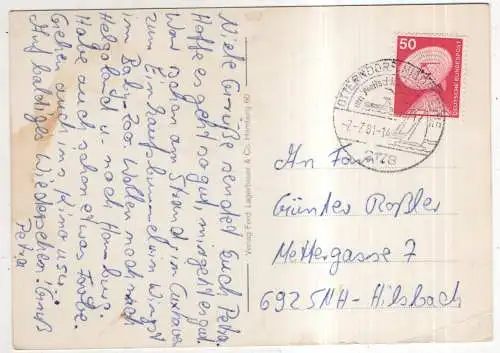 Viele Grüße sendet Euch Petra.
Hoffe es geht so gut mir geht es gut.
War schon am Strand, in Cuxhaven
zum Einkaufsbummel in Wingst
im Baby-Zoo. Wollen noch nach
Helgoland u. nach Hamburg.
Habe auch schon etwas Farbe.
Gehen auch ins Kino usw.
Auf baldiges Wiedersehen! Gruß
Petra
Verlag Ferd. Lagerbauer & Co. Hamburg 60
50
DEUTSCHE BUNDESPOST
OTTERNDORF
-7.-7.81-14
An Familie
Günter Roßler
Mettergasse 7
6925 NH-Hilsbach